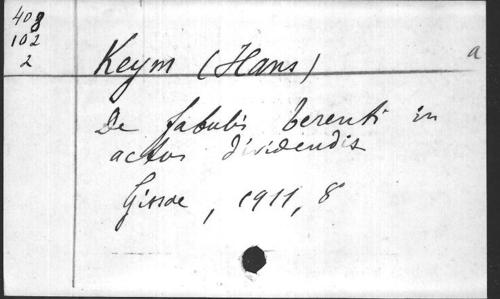 408
102
2
Keym (Hans)
a
De fabulis Terenti in
actus dividendis
Gissae, 1911, 8°